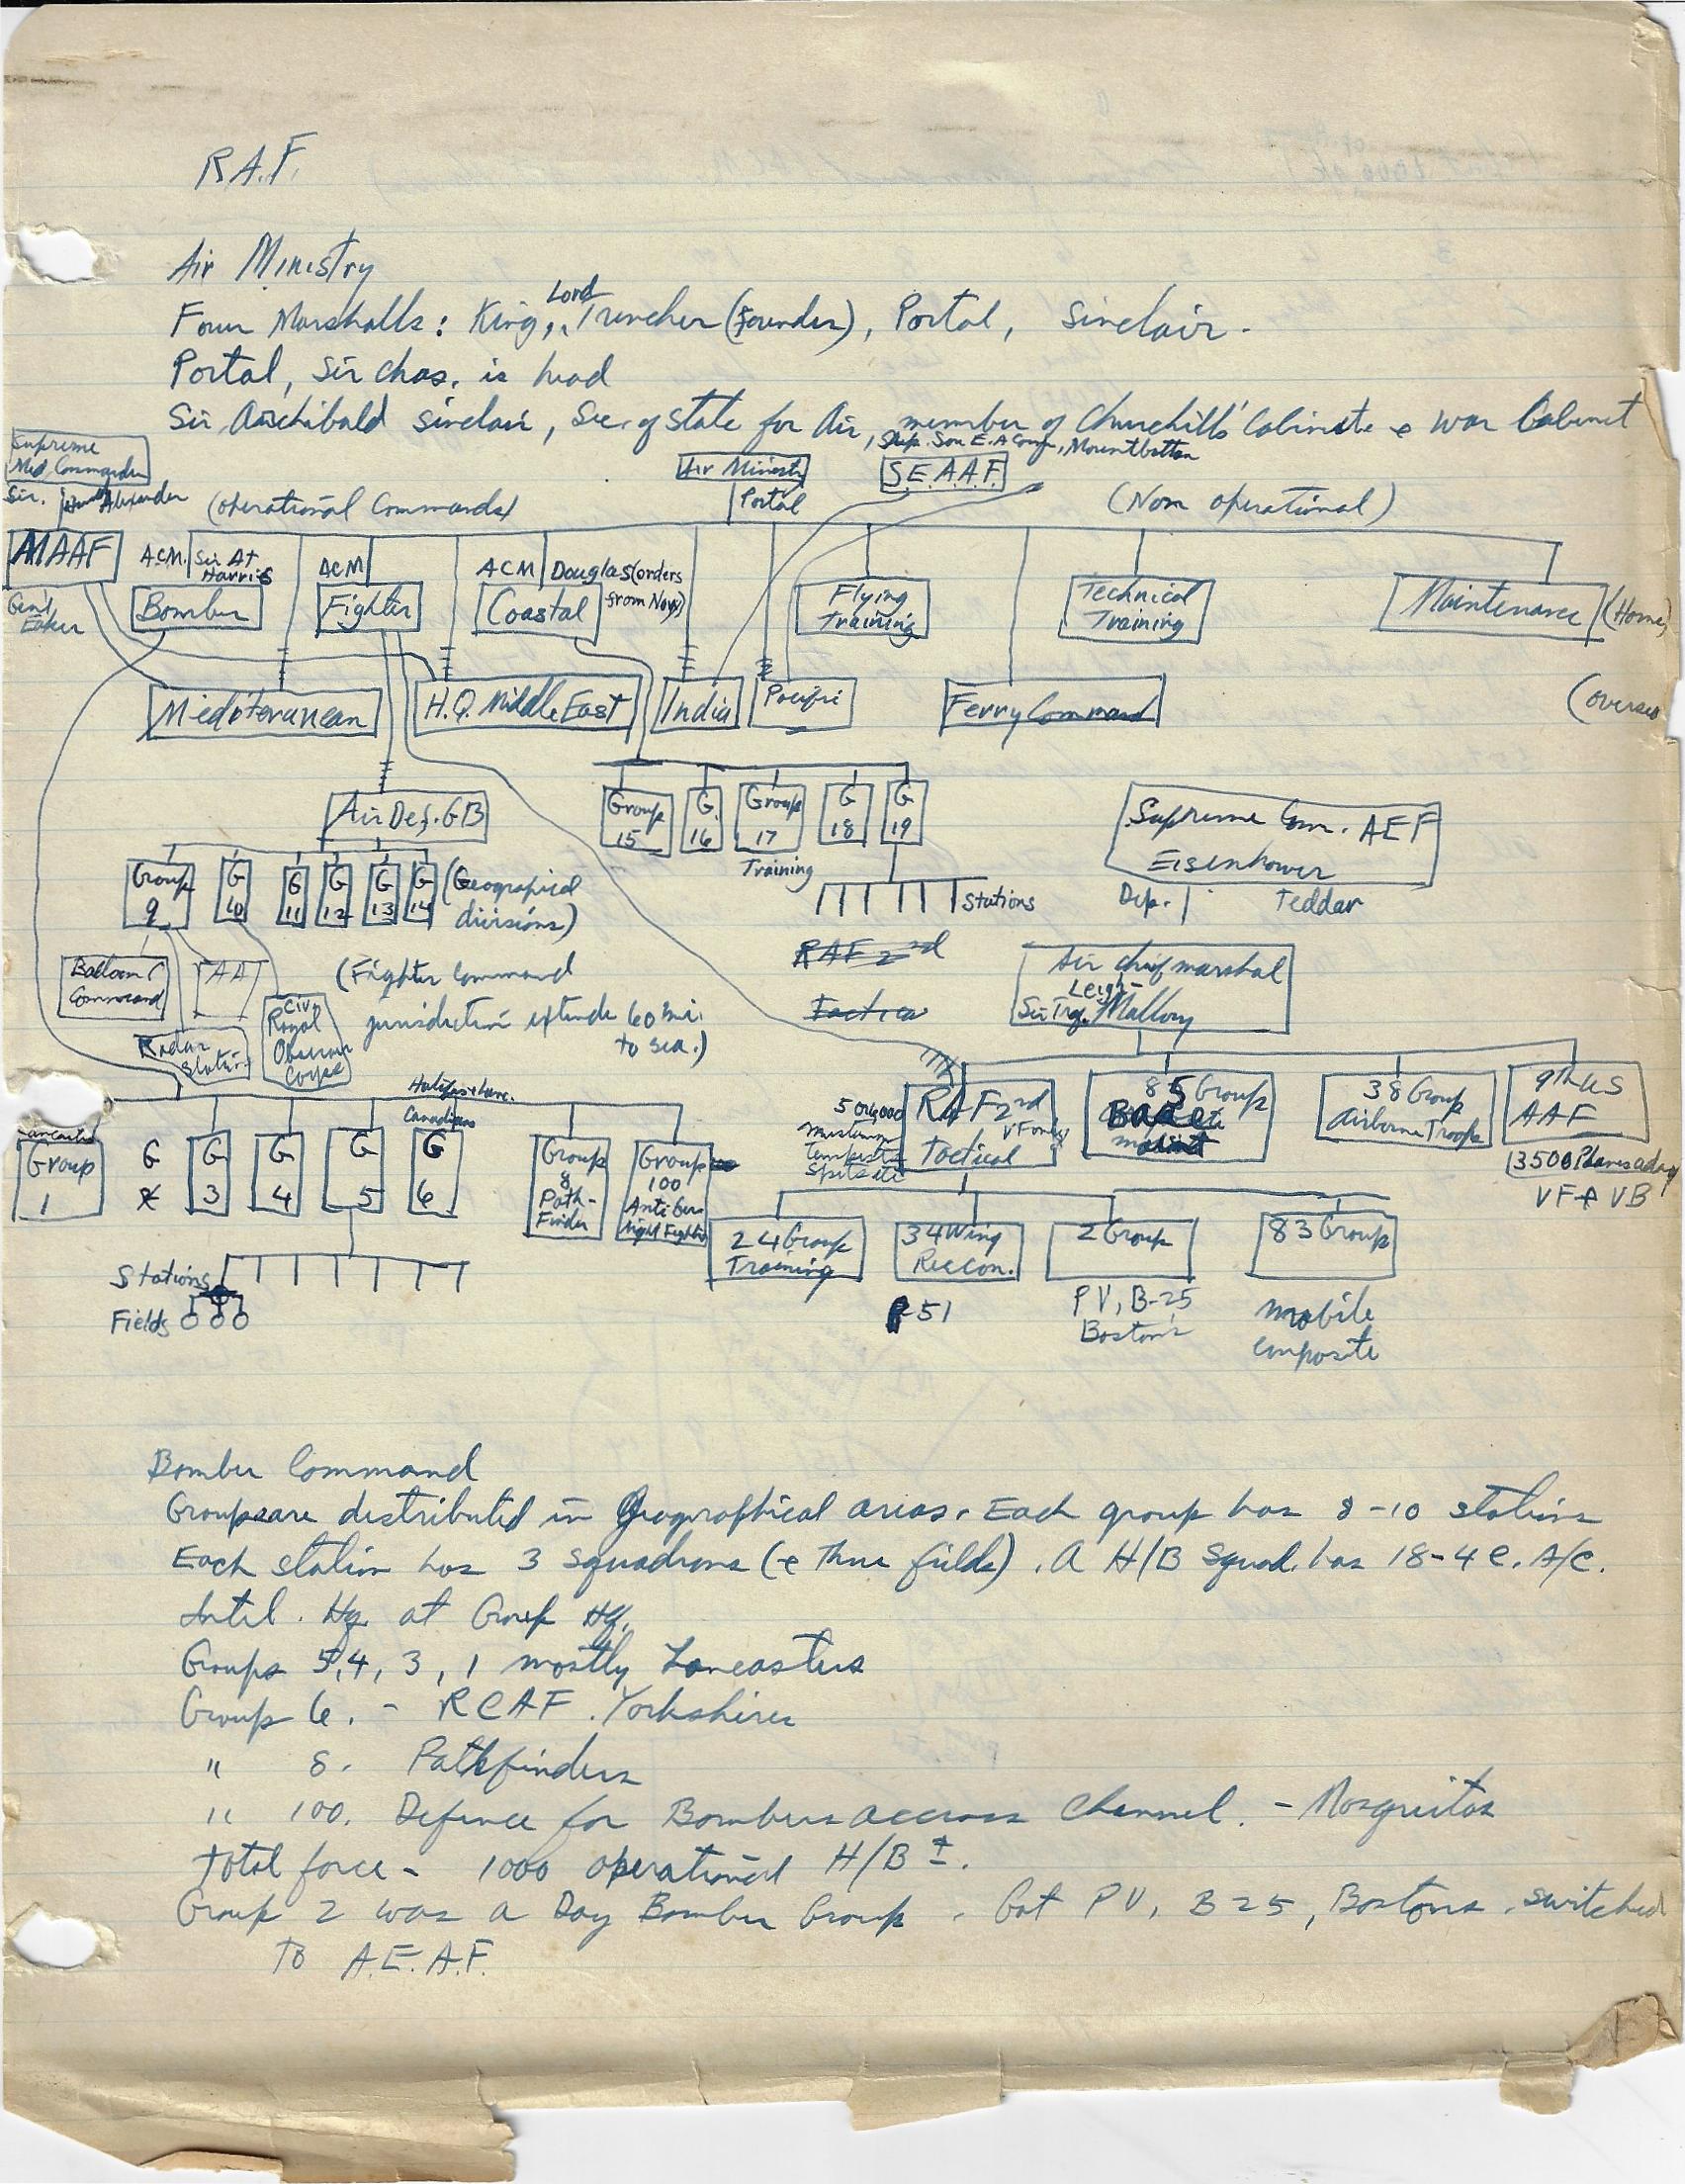 R.A.F.
Air Ministry
Four Marshalls: King, Lord Truncher (founder), Portal, Sinclair.
Portal, Sir Chas. is head
Sir Archibald Sinclair, Sec. of State for Air, member of Churchill's Cabinet & War Cabinet
Supreme
Med. Commander
Sir. Alexander
(Operational Commands)
Air Ministry
Portal
Sup. Sou E. A Comm, Mountbatten
S.E.A.A.F.
(Non operational)
MAAF
Gen'l
Eaker
A.C.M. Sir At
Harris
Bomber
ACM
Fighter
ACM Douglas (orders
from Navy)
Coastal
Flying
Training
Technical
Training
Maintenance (Home)
Mediteranean
H.Q. Middle East
India
Pacific
Ferry Command
(overses
Air Def. GB
Group
15
G
16
Group
17
Training
G
18
G
19
Stations
Supreme Com. AEF
Eisenhower
Dep. Teddar
Group
9
G
10
G
11
G
12
G
13
G
14
(Geographical
divisions)
Balloon
Command
AA
Radar
Station
Civ
Royal
Observer
Corps
(Fighter Command
jurisdiction extends 60 mi.
to sea.)
RAF 2nd
Tactica
Air chief marshal
Leigh-
Sir Trf. Mallory
Lancaster
Group
1
G
2
G
3
G
4
G
5
Canadians
G
6
Group
8
Path-
Finder
Group
100
Night Fighter
Stations
Fields
Mustang
Tempests
Spits etc
RAF 2nd
VF only
Tactical
85 Group
Base
38 Group
Airborne Troops
9th US
AAF
3500 Planes a day
VF & VB
24 Group
Training
34 Wing
Reccon.
P51
2 Group
PV, B-25
Bostons
83 Group
mobile
composite
Bomber Command
Groups are distributed in Geographical areas. Each group has 8-10 stations
Each station has 3 squadrons (& three fields). A H/B Squad. has 18-4 e. A/C.
Intel. Hq. at Group Hq.
Groups 5, 4, 3, 1 mostly Lancasters
Group 6. - RCAF. Yorkshires
" 8. Pathfinders
" 100. Defence for Bombers accross Channel. - Mosquitos
total force - 1000 operational H/B ±.
Group 2 was a Day Bomber Group. Got PV, B25, Bostons. switched
to A.E.A.F.